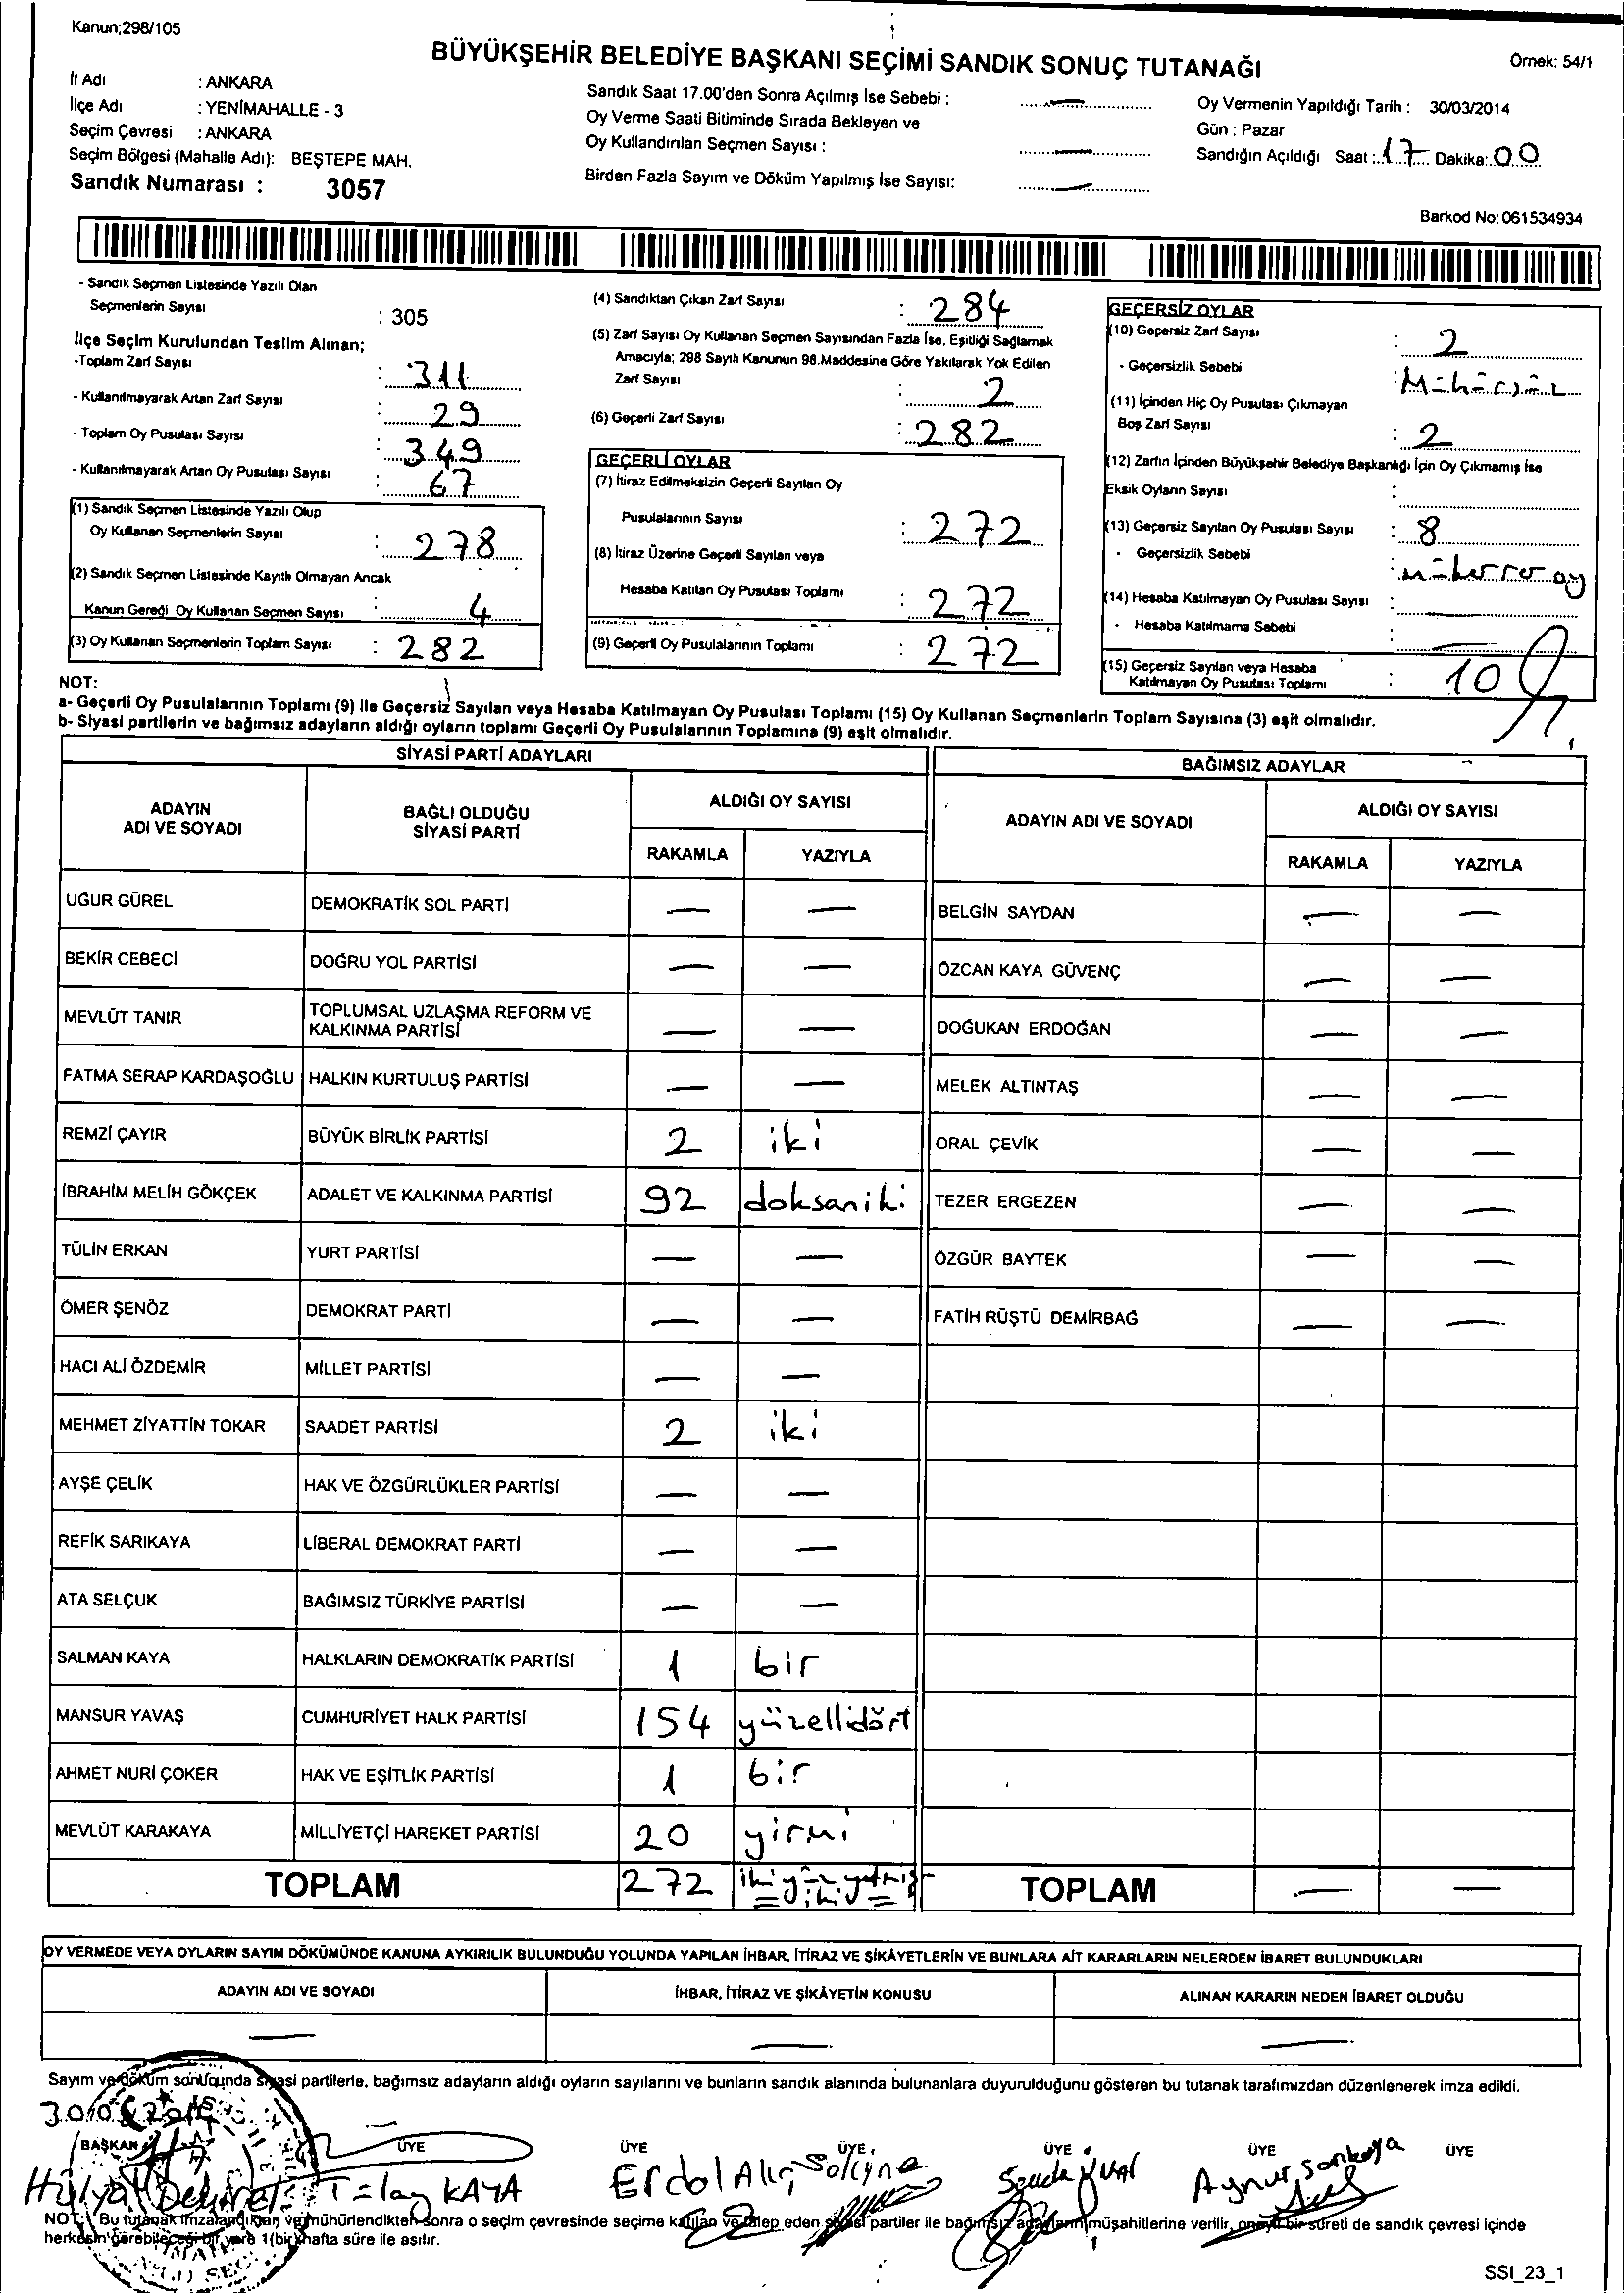 Kanun;298/105
BÜYÜKŞEHİR BELEDİYE BAŞKANI SEÇİMİ SANDIK SONUÇ TUTANAĞI
Örnek: 54/1
İl Adı : ANKARA
İlçe Adı : YENİMAHALLE - 3
Seçim Çevresi : ANKARA
Seçim Bölgesi (Mahalle Adı): BEŞTEPE MAH.
Sandık Numarası : 3057
Sandık Saat 17.00'den Sonra Açılmış İse Sebebi : —
Oy Verme Saati Bitiminde Sırada Bekleyen ve
Oy Kullandırılan Seçmen Sayısı : —
Birden Fazla Sayım ve Döküm Yapılmış İse Sayısı: —
Oy Vermenin Yapıldığı Tarih : 30/03/2014
Gün : Pazar
Sandığın Açıldığı Saat : 17 Dakika: 00
Barkod No: 061534934
- Sandık Seçmen Listesinde Yazılı Olan
Seçmenlerin Sayısı : 305
İlçe Seçim Kurulundan Teslim Alınan;
-Toplam Zarf Sayısı : 311
- Kullanılmayarak Artan Zarf Sayısı : 29
- Toplam Oy Pusulası Sayısı : 349
- Kullanılmayarak Artan Oy Pusulası Sayısı : 67
(1) Sandık Seçmen Listesinde Yazılı Olup
Oy Kullanan Seçmenlerin Sayısı : 278
(2) Sandık Seçmen Listesinde Kayıtlı Olmayan Ancak
Kanun Gereği Oy Kullanan Seçmen Sayısı : 4
(3) Oy Kullanan Seçmenlerin Toplam Sayısı : 282
(4) Sandıktan Çıkan Zarf Sayısı : 284
(5) Zarf Sayısı Oy Kullanan Seçmen Sayısından Fazla İse, Eşitliği Sağlamak
Amacıyla; 298 Sayılı Kanunun 98.Maddesine Göre Yakılarak Yok Edilen
Zarf Sayısı : 2
(6) Geçerli Zarf Sayısı : 282
GEÇERLİ OYLAR
(7) İtiraz Edilmeksizin Geçerli Sayılan Oy
Pusulalarının Sayısı : 272
(8) İtiraz Üzerine Geçerli Sayılan veya
Hesaba Katılan Oy Pusulası Toplamı : 272
(9) Geçerli Oy Pusulalarının Toplamı : 272
GEÇERSİZ OYLAR
(10) Geçersiz Zarf Sayısı : 2
- Geçersizlik Sebebi : Mühürsüz
(11) İçinden Hiç Oy Pusulası Çıkmayan
Boş Zarf Sayısı : 2
(12) Zarfın İçinden Büyükşehir Belediye Başkanlığı İçin Oy Çıkmamış İse
Eksik Oyların Sayısı :
(13) Geçersiz Sayılan Oy Pusulası Sayısı : 8
- Geçersizlik Sebebi : mükerrer oy
(14) Hesaba Katılmayan Oy Pusulası Sayısı :
- Hesaba Katılmama Sebebi : —
(15) Geçersiz Sayılan veya Hesaba
Katılmayan Oy Pusulası Toplamı : 10
NOT:
a- Geçerli Oy Pusulalarının Toplamı (9) ile Geçersiz Sayılan veya Hesaba Katılmayan Oy Pusulası Toplamı (15) Oy Kullanan Seçmenlerin Toplam Sayısına (3) eşit olmalıdır.
b- Siyasi partilerin ve bağımsız adayların aldığı oyların toplamı Geçerli Oy Pusulalarının Toplamına (9) eşit olmalıdır.
SİYASİ PARTİ ADAYLARI
ADAYIN ADI VE SOYADI BAĞLI OLDUĞU SİYASİ PARTİ ALDIĞI OY SAYISI
RAKAMLA YAZIYLA
UĞUR GÜREL DEMOKRATİK SOL PARTİ — —
BEKİR CEBECİ DOĞRU YOL PARTİSİ — —
MEVLÜT TANIR TOPLUMSAL UZLAŞMA REFORM VE KALKINMA PARTİSİ — —
FATMA SERAP KARDAŞOĞLU HALKIN KURTULUŞ PARTİSİ — —
REMZİ ÇAYIR BÜYÜK BİRLİK PARTİSİ 2 iki
İBRAHİM MELİH GÖKÇEK ADALET VE KALKINMA PARTİSİ 92 doksaniki
TÜLİN ERKAN YURT PARTİSİ — —
ÖMER ŞENÖZ DEMOKRAT PARTİ — —
HACI ALİ ÖZDEMİR MİLLET PARTİSİ — —
MEHMET ZİYATTİN TOKAR SAADET PARTİSİ 2 iki
AYŞE ÇELİK HAK VE ÖZGÜRLÜKLER PARTİSİ — —
REFİK SARIKAYA LİBERAL DEMOKRAT PARTİ — —
ATA SELÇUK BAĞIMSIZ TÜRKİYE PARTİSİ — —
SALMAN KAYA HALKLARIN DEMOKRATİK PARTİSİ 1 bir
MANSUR YAVAŞ CUMHURİYET HALK PARTİSİ 154 yüzellidört
AHMET NURİ ÇOKER HAK VE EŞİTLİK PARTİSİ 1 bir
MEVLÜT KARAKAYA MİLLİYETÇİ HAREKET PARTİSİ 20 yirmi
TOPLAM 272 ikiyüzyetmişiki
BAĞIMSIZ ADAYLAR
ADAYIN ADI VE SOYADI ALDIĞI OY SAYISI
RAKAMLA YAZIYLA
BELGİN SAYDAN — —
ÖZCAN KAYA GÜVENÇ — —
DOĞUKAN ERDOĞAN — —
MELEK ALTINTAŞ — —
ORAL ÇEVİK — —
TEZER ERGEZEN — —
ÖZGÜR BAYTEK — —
FATİH RÜŞTÜ DEMİRBAĞ — —
TOPLAM — —
OY VERMEDE VEYA OYLARIN SAYIM DÖKÜMÜNDE KANUNA AYKIRILIK BULUNDUĞU YOLUNDA YAPILAN İHBAR, İTİRAZ VE ŞİKÂYETLERİN VE BUNLARA AİT KARARLARIN NELERDEN İBARET BULUNDUKLARI
ADAYIN ADI VE SOYADI İHBAR, İTİRAZ VE ŞİKÂYETİN KONUSU ALINAN KARARIN NEDEN İBARET OLDUĞU
— — —
Sayım ve döküm sonucunda siyasi partilerle, bağımsız adayların aldığı oyların sayılarını ve bunların sandık alanında bulunanlara duyurulduğunu gösteren bu tutanak tarafımızdan düzenlenerek imza edildi.
BAŞKAN ÜYE ÜYE ÜYE ÜYE ÜYE ÜYE
Hülya Tülay KAYA Erdal Alıç Sevda Aynur Sarıkaya
NOT: Bu tutanak imzalandıktan ve mühürlendikten sonra o seçim çevresinde seçime katılan ve talep eden siyasi partiler ile bağımsız adayların müşahitlerine verilir, onaylı bir sureti de sandık çevresi içinde
herkesin görebileceği bir yere 1(bir) hafta süre ile asılır.
SSI_23_1